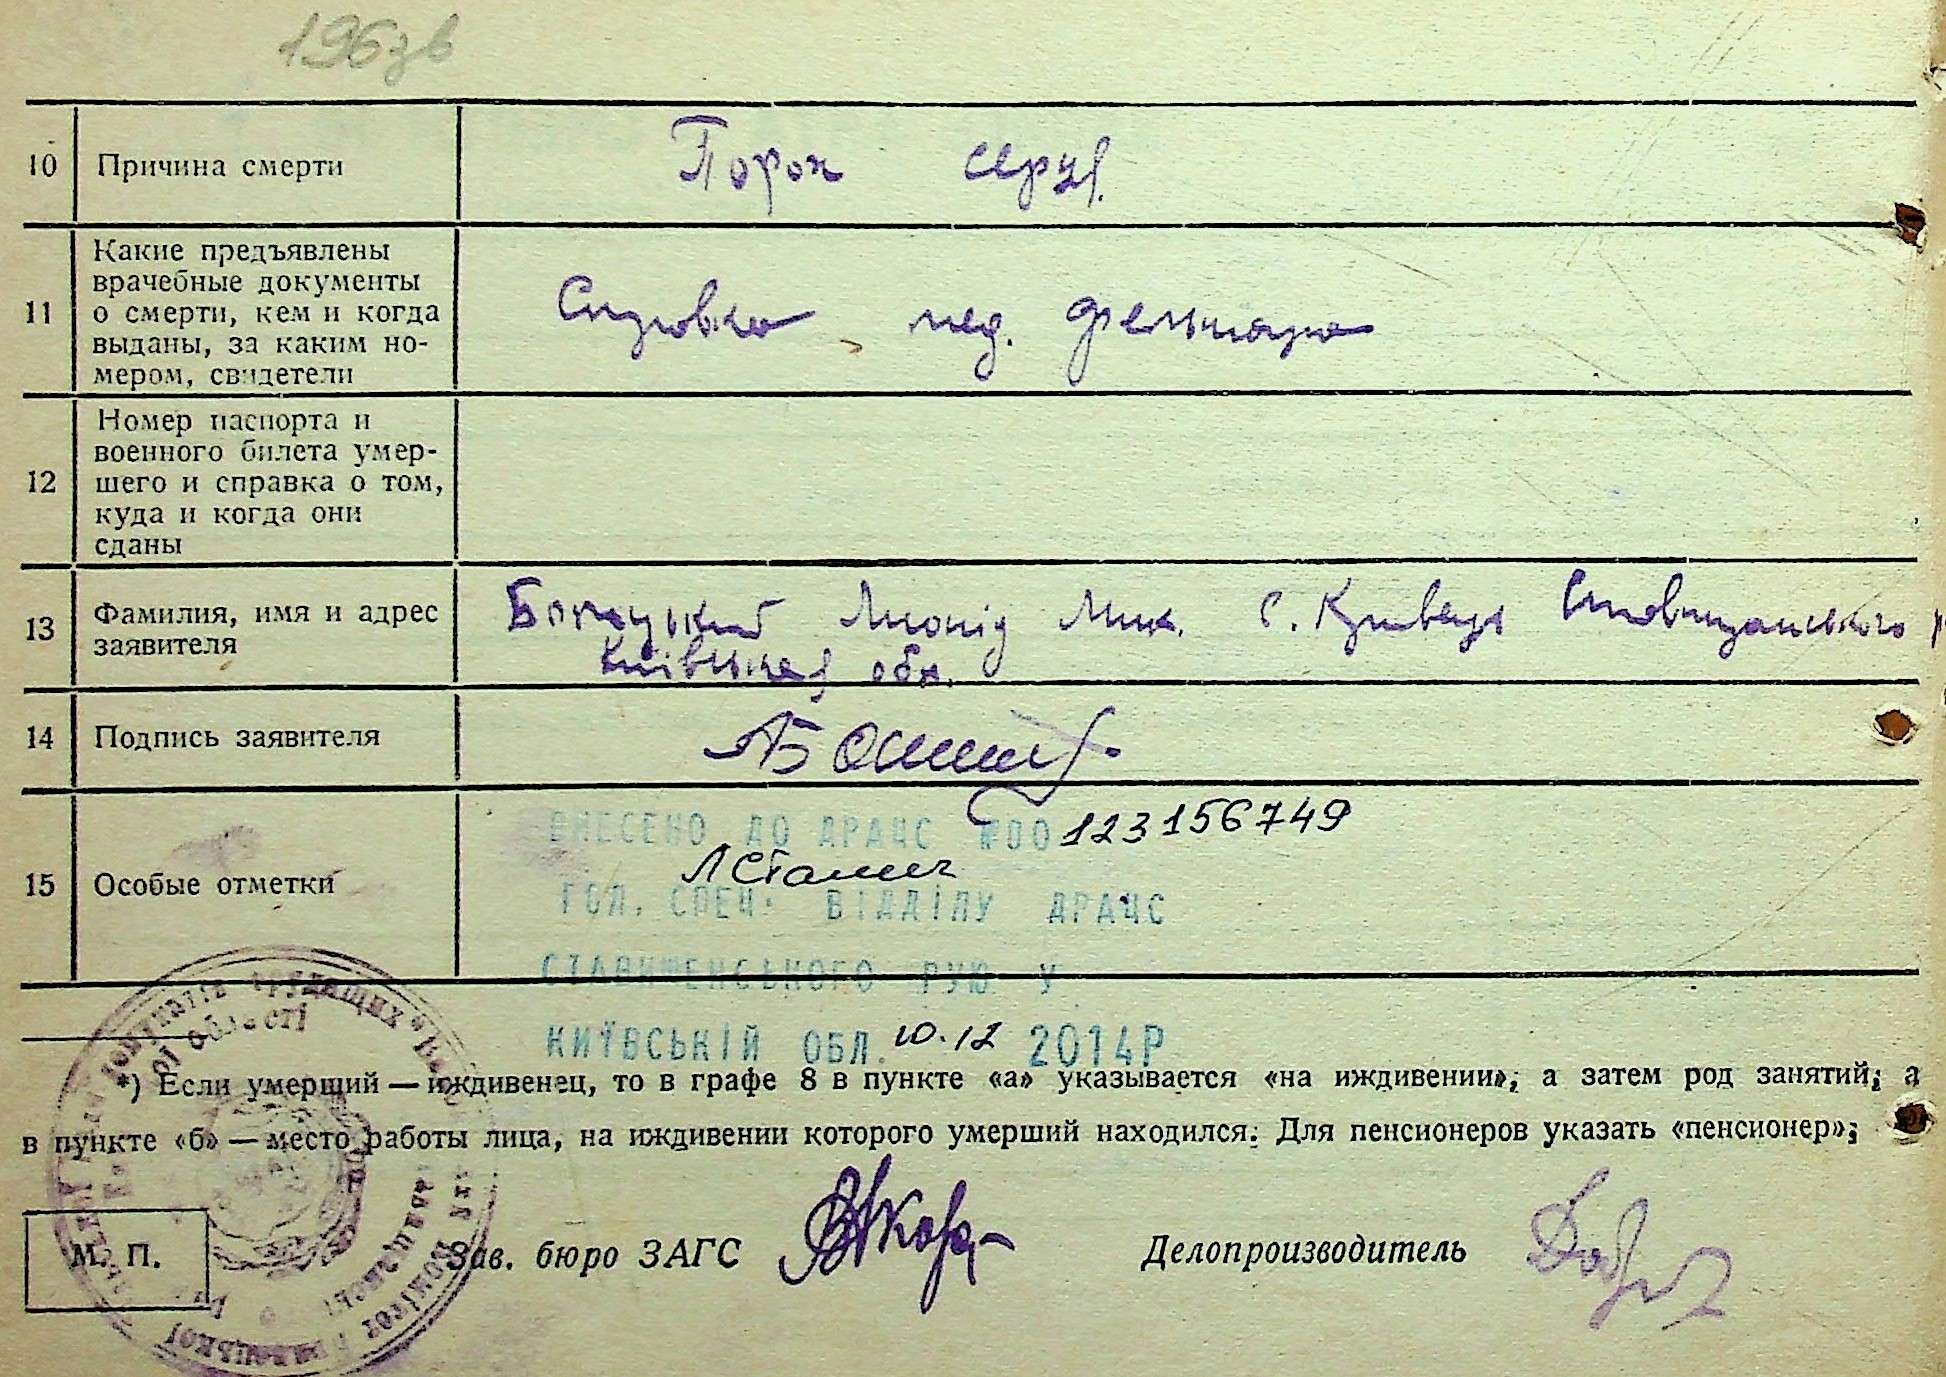 196зв
10 Причина смерти Порок серця.
11 Какие предъявлены
врачебные документы
о смерти, кем и когда
выданы, за каким но-
мером, свидетели
мед. фельшара
12 Номер паспорта и
военного билета умер-
шего и справка о том,
куда и когда они
сданы
13 Фамилия, имя и адрес
заявителя
Леонід Мик. с. Кривець Ставищанського р
Київська обл.
14 Подпись заявителя
15 Особые отметки
ВНЕСЕНО ДО ДРАЦС №00 123156749
ГОЛ. СПЕЦ. ВІДДІЛУ ДРАЦС
СТАВИЩЕНСЬКОГО РУЮ У
КИЇВСЬКІЙ ОБЛ. 10.12 2014Р
*) Если умерший — иждивенец, то в графе 8 в пункте «а» указывается «на иждивении», а затем род занятий; а
в пункте «б» — место работы лица, на иждивении которого умерший находился. Для пенсионеров указать «пенсионер»;
М. П. Зав. бюро ЗАГС Делопроизводитель
депутатів трудящих
області